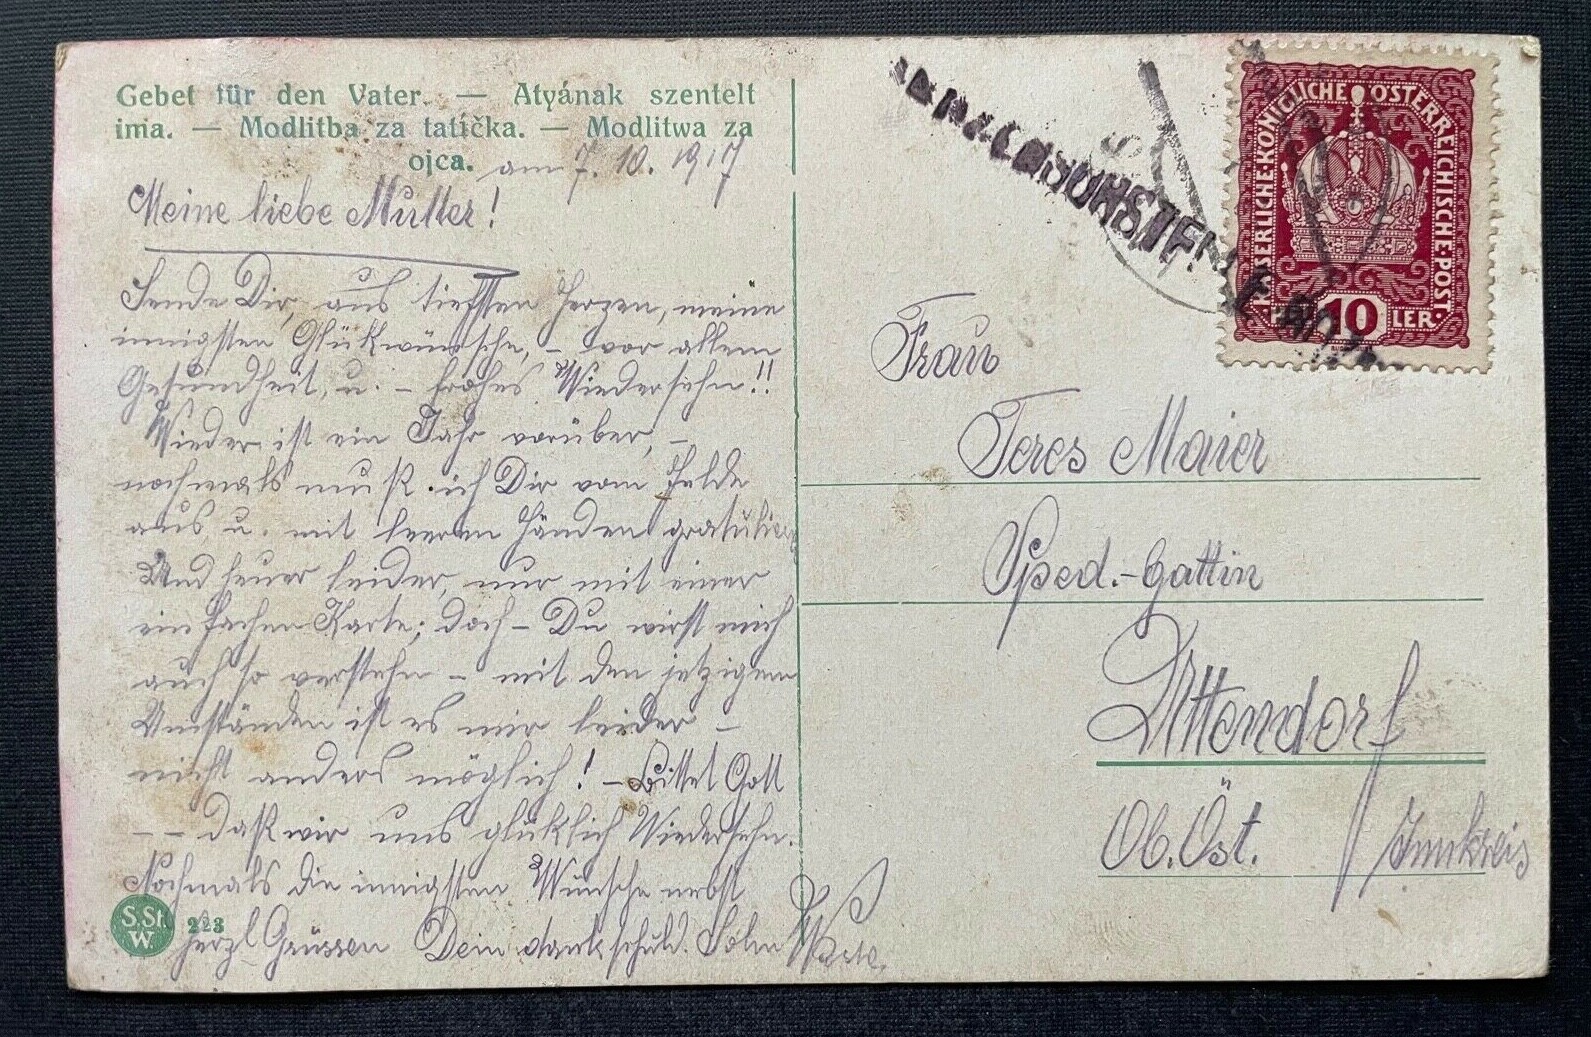 Gebet für den Vater. — Atyának szentelt
ima. — Modlitba za tatíčka. — Modlitwa za
ojca.
am 7. 10. 1917
Meine liebe Mutter!
Sende Dir, aus tiefsten Herzen, meine
innigsten Glükwünsche, – vor allem
Gesundheit, u. – frohes Wiedersehn!!
Wieder ist ein Jahr vorüber, –
nochmals muß ich Dir vom Felde
aus u. mit leeren Händen gratulieren
Und heuer leider, nur mit einer
einfachen Karte; doch – Du wirst mich
auch so verstehn – mit den jetzigen
Umständen ist es mir leider –
nicht anders möglich! – Bittet Gott
– – daß wir uns glüklich Wiedersehn.
Nochmals die innigsten Wünsche nebst
herzl Grüssen Dein dankschuld. Sohn
S.St.
W.
223
KAISERLICHE·KÖNIGLICHE ÖSTERREICHISCHE·POST·
10
LER
Frau
Teres Maier
Sped.-Gattin
Uttendorf
Ob.Öst. / Innkreis